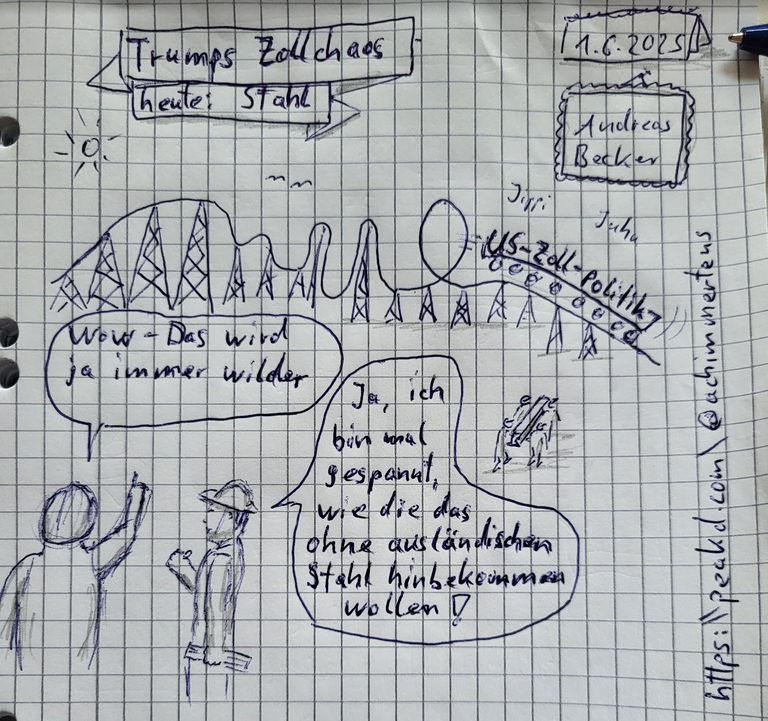 Trumps Zollchaos
heute: Stahl
1.6.2025
Andreas
Becker
Jippi
Juhu
US-Zoll-Politik
Wow - Das wird
ja immer wilder
Ja, ich
bin mal
gespannt,
wie die das
ohne ausländischen
Stahl hinbekommen
wollen!
https:\\peakd.com\@achimmertens